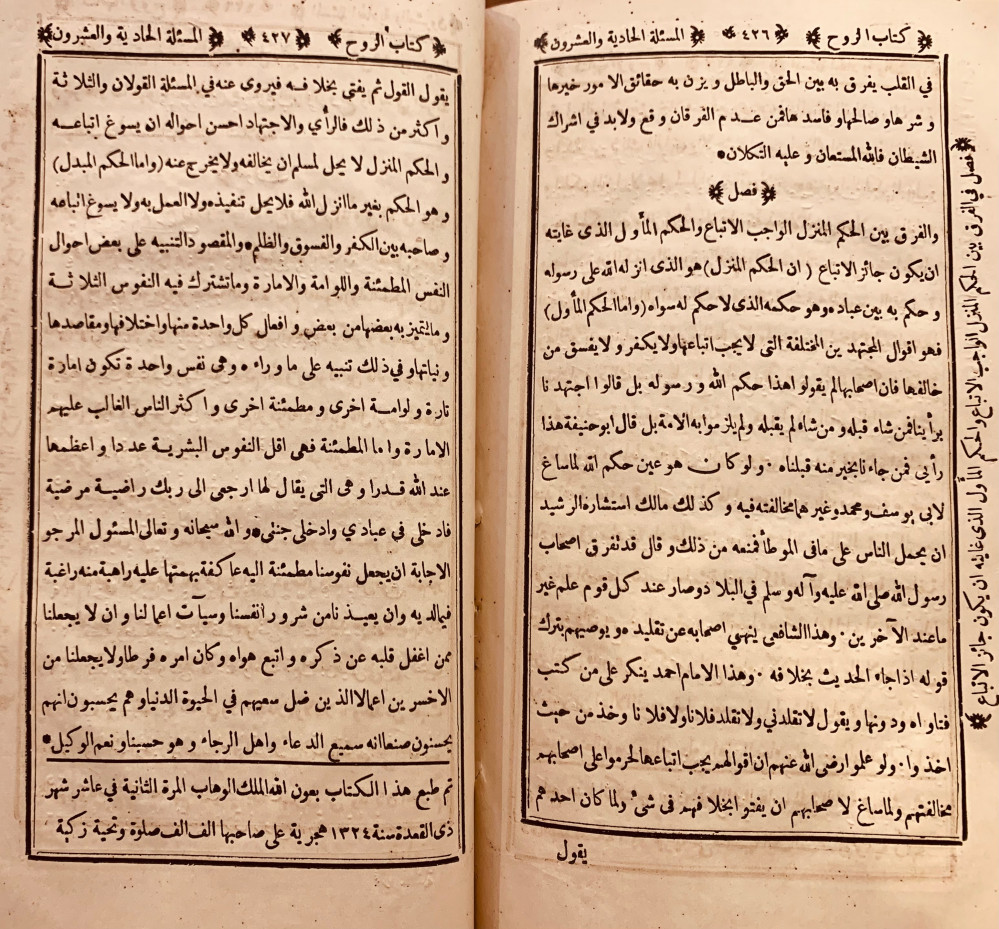 كتاب الروح ٤٢٦ المسئلة الحادية والعشرون
في القلب يفرق به بين الحق والباطل ويزن به حقائق الامور خيرها
وشرها وصالحها وفاسدها فمن عدم الفرقان وقع ولابد في اشراك
الشيطان فالله المستعان وعليه التكلان
فصل
والفرق بين الحكم المنزل الواجب الاتباع والحكم المأول الذى غايته
ان يكون جائز الاتباع (ان الحكم المنزل) هو الذى انزله الله على رسوله
وحكم به بين عباده وهو حكمه الذى لا حكم له سواه (واما الحكم المأول)
فهو اقوال المجتهدين المختلفة التى لا يجب اتباعها ولا يكفر ولا يفسق من
خالفها فان اصحابها لم يقولوا هذا حكم الله ورسوله بل قالوا اجتهدنا
برأينا فمن شاء قبله ومن شاء لم يقبله ولم يلزموا به الامة بل قال ابو حنيفة هذا
رأيي فمن جاءنا بخير منه قبلناه · ولو كان هو عين حكم الله لما ساغ
لابي يوسف ومحمد وغيرهما مخالفته فيه وكذلك مالك استشاره الرشيد
ان يحمل الناس على ما فى الموطأ فمنعه من ذلك وقال قد تفرق اصحاب
رسول الله صلى الله عليه وآله وسلم في البلاد وصار عند كل قوم علم غير
ما عند الآخرين · وهذا الشافعى ينهي اصحابه عن تقليده ويوصيهم بترك
قوله اذا جاء الحديث بخلافه · وهذا الامام احمد ينكر على من كتب
فتاواه ودونها ويقول لا تقلدني ولا تقلد فلانا ولا فلانا وخذ من حيث
اخذوا · ولو علموا رضى الله عنهم ان اقوالهم يجب اتباعها لحرموا على اصحابهم
مخالفتهم ولما ساغ لاصحابهم ان يفتوا بخلافهم فى شئ ولما كان احدهم
يقول
فصل في الفرق بين الحكم المنزل الواجب الاتباع والحكم المأول الذى غايته ان يكون جائز الاتباع
كتاب الروح ٤٢٧ المسئلة الحادية والعشرون
يقول القول ثم يفتى بخلافه فيروى عنه في المسئلة القولان والثلاثة
واكثر من ذلك فالرأي والاجتهاد احسن احواله ان يسوغ اتباعه
والحكم المنزل لا يحل لمسلم ان يخالفه ولا يخرج عنه (واما الحكم المبدل)
وهو الحكم بغير ما انزل الله فلا يحل تنفيذه ولا العمل به ولا يسوغ اتباعه
وصاحبه بين الكفر والفسوق والظلم والمقصود التنبيه على بعض احوال
النفس المطمئنة واللوامة والامارة وما تشترك فيه النفوس الثلاثة
وما يتميز به بعضها من بعض وافعال كل واحدة منها واختلافها ومقاصدها
ونياتها وفي ذلك تنبيه على ما وراءه وهى نفس واحدة تكون امارة
تارة ولوامة اخرى ومطمئنة اخرى واكثر الناس الغالب عليهم
الامارة واما المطمئنة فهى اقل النفوس البشرية عددا واعظمها
عند الله قدرا وهى التى يقال لها ارجعى الى ربك راضية مرضية
فادخلى في عبادي وادخلى جنتى والله سبحانه وتعالى المسئول المرجو
الاجابة ان يجعل نفوسنا مطمئنة اليه عاكفة بهمتها عليه راهبة منه راغبة
فيما لديه وان يعيذنا من شرور انفسنا وسيآت اعمالنا وان لا يجعلنا
ممن اغفل قلبه عن ذكره واتبع هواه وكان امره فرطا ولا يجعلنا من
الاخسرين اعمالا الذين ضل سعيهم في الحيوة الدنيا وهم يحسبون انهم
يحسنون صنعا انه سميع الدعاء واهل الرجاء وهو حسبنا ونعم الوكيل
تم طبع هذا الكتاب بعون الله الملك الوهاب المرة الثانية في عاشر شهر
ذى القعدة سنة ١٣٢٤ هجرية على صاحبها الف الف صلوة وتحية زكية